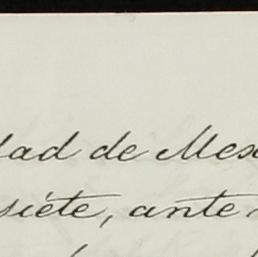 dad de Mex
siete, ante